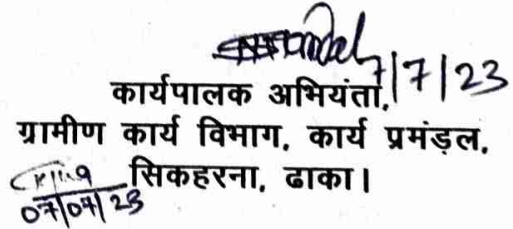 7/7/23
कार्यपालक अभियंता,
ग्रामीण कार्य विभाग, कार्य प्रमंड़ल,
सिकहरना, ढाका।
07/07/23